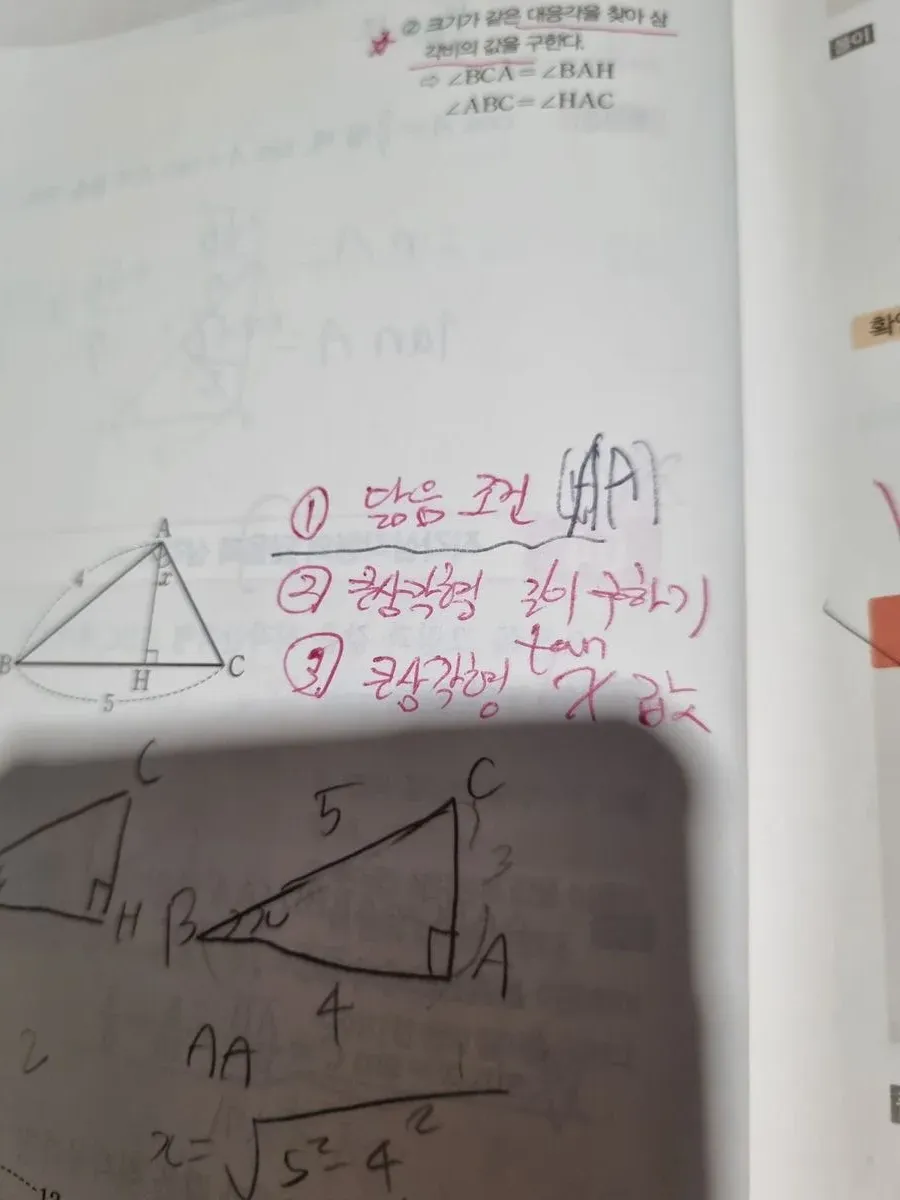 ② 크기가 같은 대응각을 찾아 삼
각비의 값을 구한다.
⇨ ∠BCA=∠BAH
∠ABC=∠HAC
풀이
확인
① 닮음 조건 (AA)
② 큰삼각형 길이 구하기
③ 큰삼각형 tan x 값
A
4
x
B
H
C
5
C
H
5
C
3
B
x
A
4
2
AA
x=√5²-4²
12